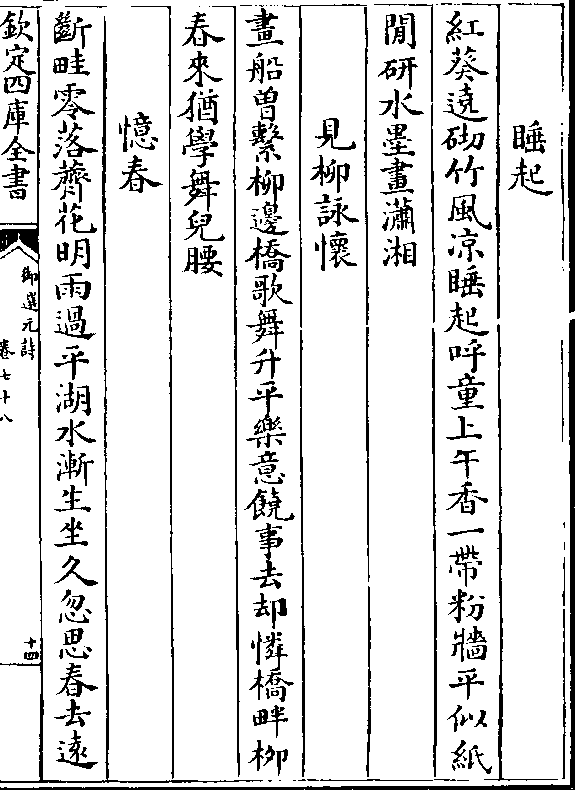 睡起
紅葵遶砌竹風凉睡起呼童上午香一帶粉牆平似紙
閒研水墨畫瀟湘
見柳詠懷
畫船曽繫柳邊橋歌舞升平樂意饒事去却憐橋畔柳
春來猶學舞兒腰
憶春
斷畦零落薺花明雨過平湖水漸生坐久忽思春去遠
欽定四庫全書
御選元詩
卷七十八
十四